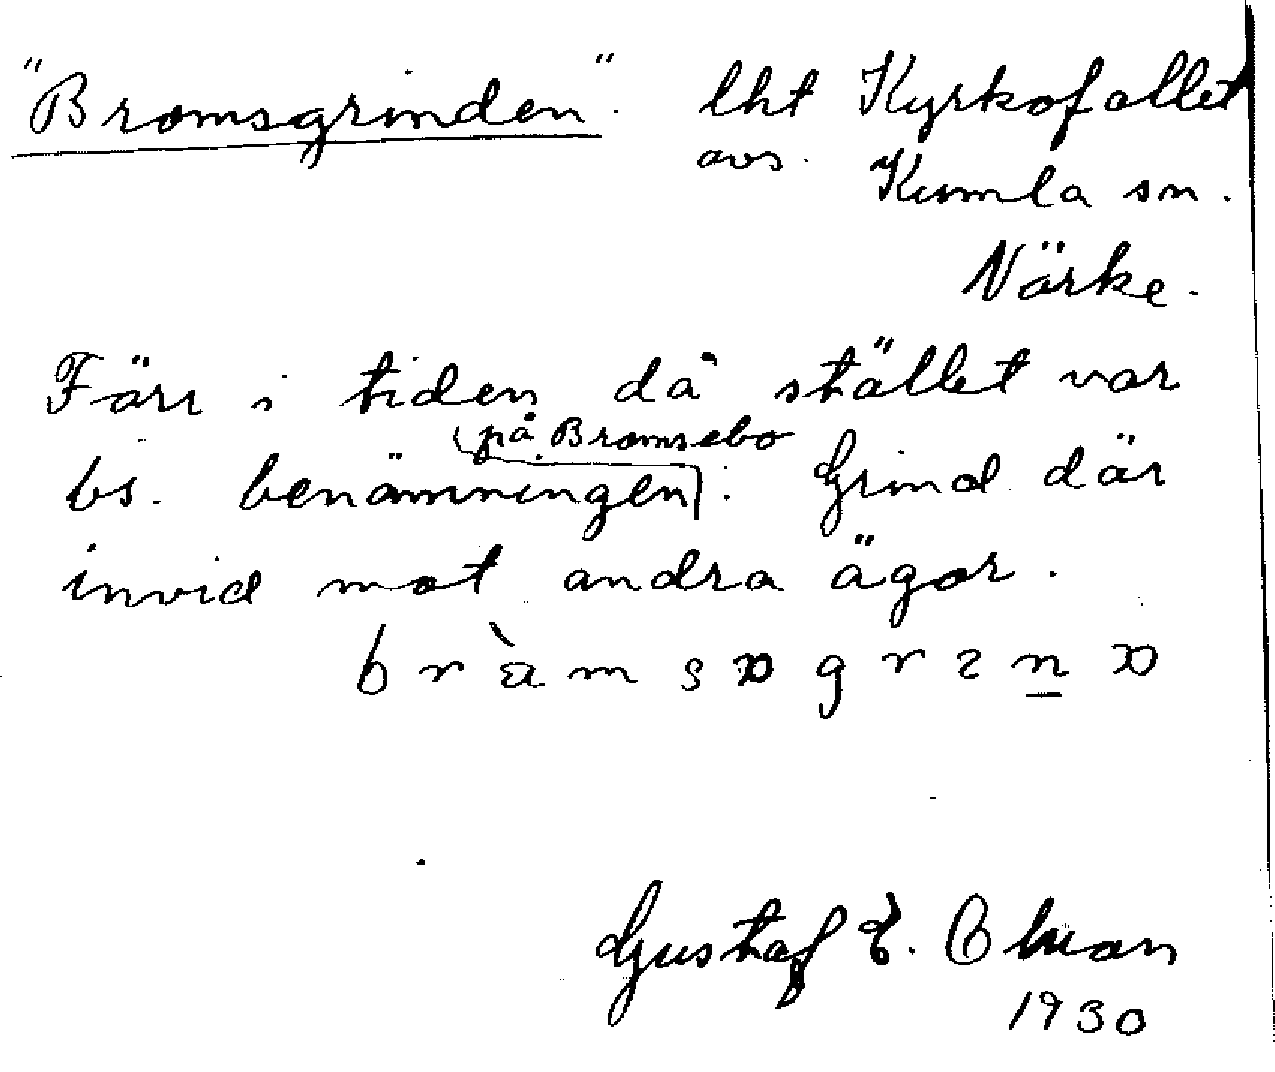 "Bromsgrinden". lht Kyrkofallet
avs. Kumla sn.
Närke.
Färr i tiden då stället var
på Bromsebo
bs. benämningen. Grind där
invid mot andra ägor.
1930